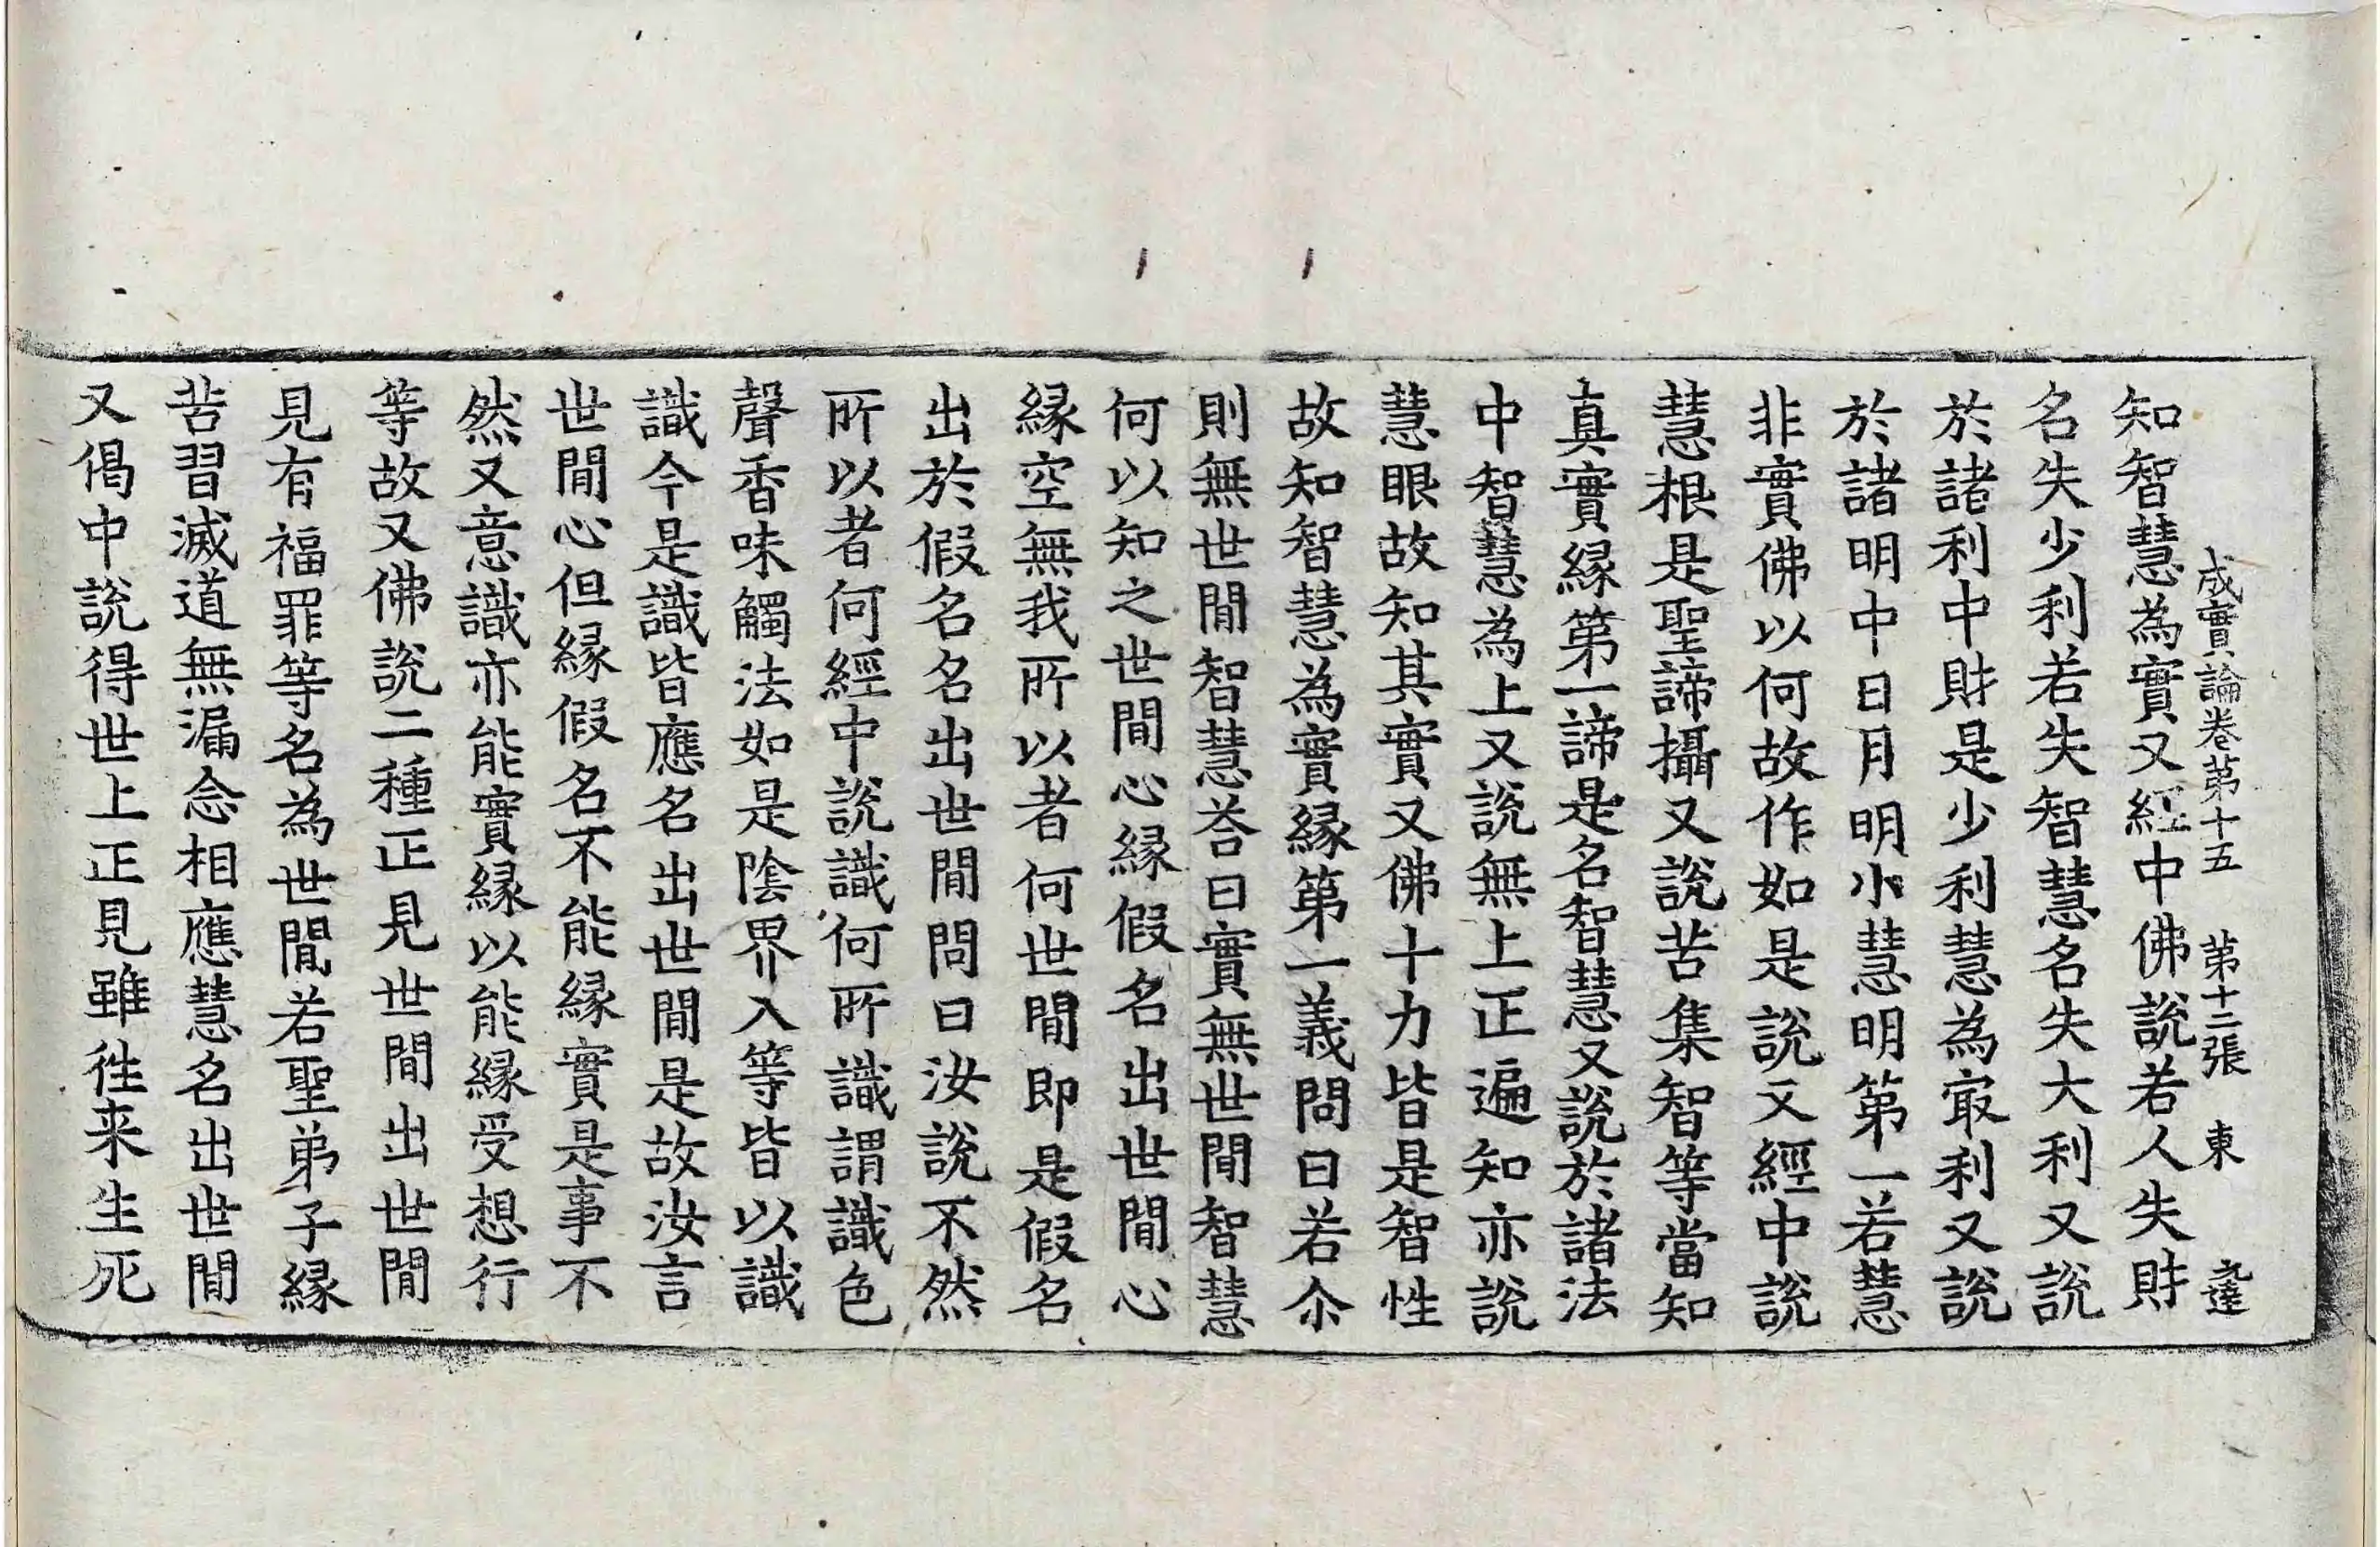 成實論卷第十五　第十二張　東　元達
知智慧為實又經中佛說若人失財
名失少利若失智慧名失大利又說
於諸利中財是少利慧為㝡利又說
於諸明中日月明小慧明第一若慧
非實佛以何故作如是說又經中說
慧根是聖諦攝又說苦集智等當知
真實緣第一諦是名智慧又說於諸法
中智慧為上又說無上正遍知亦說
慧眼故知其實又佛十力皆是智性
故知智慧為實緣第一義問曰若尒
則無世間智慧荅曰實無世間智慧
何以知之世間心緣假名出世間心
緣空無我所以者何世間即是假名
出於假名名出世間問曰汝說不然
所以者何經中說識何所識謂識色
聲香味觸法如是陰界入等皆以識
識今是識皆應名出世間是故汝言
世間心但緣假名不能緣實是事不
然又意識亦能實緣以能緣受想行
等故又佛說二種正見世間出世間
見有福罪等名為世間若聖弟子緣
苦習滅道無漏念相應慧名出世間
又偈中說得世上正見雖徃来生死